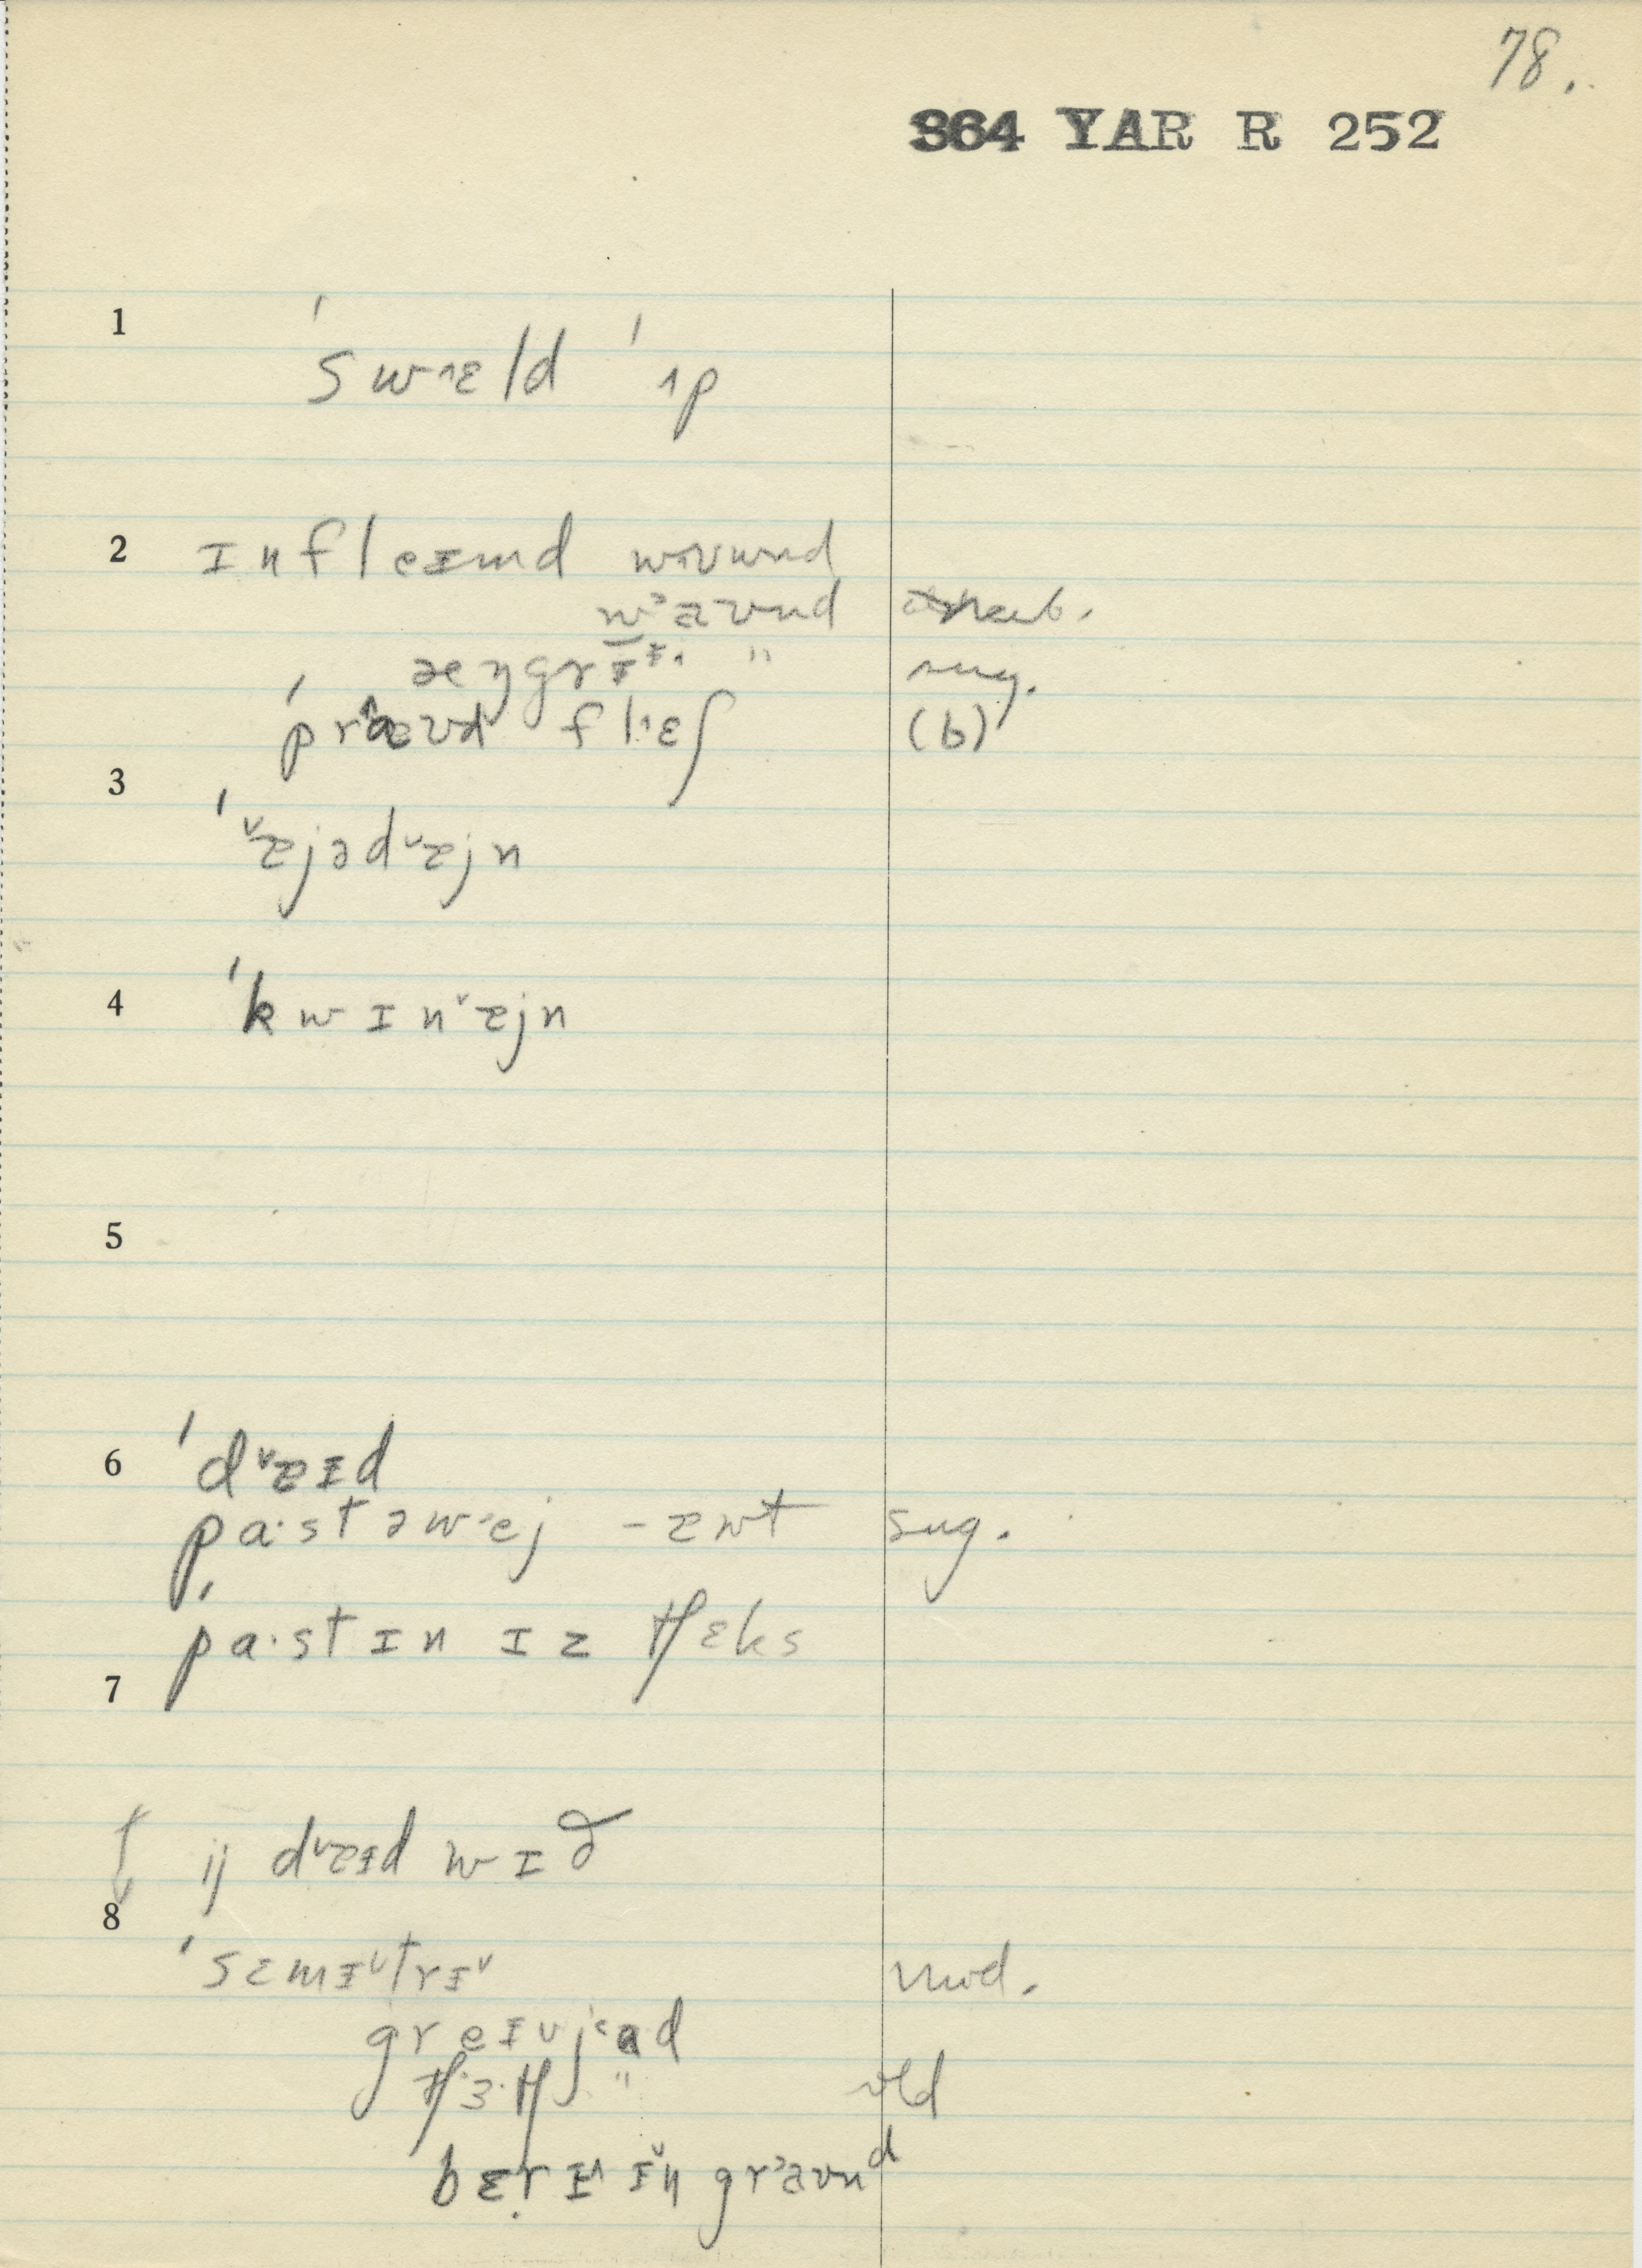 78.
364 YAR R 252
1
ˈswᴧɛld ˈᴧp
2 ɪnfleɪmd wᴧʊwnd
w˃aʊnd
æŋgrɪᵻ˄ " sug.
ˈpr˄æʊd flᴧɛʃ (b)
3
ˈ˅æjəd˅æjn
4 ˈkwɪn˅æjn
5
6 ˈd˅æɪd
pa·stəw˂ej – æwt sug.
ˈpa·st ɪn ɪz tʃɛks
7
ij d˅æɪd wɪð
8
ˈsɛmɪ˅trɪ˅ mod.
greɪvj˂ɑd
tʃ·ɜ·tʃ " old
bɛrɪ˄ɪ˅ŋ gr˃aʊnd